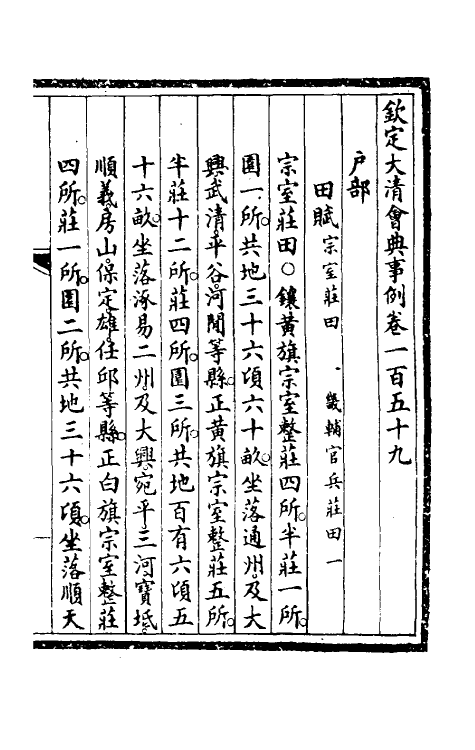 欽定大清會典事例卷一百五十九
戶部
田賦 宗室莊田 畿輔官兵莊田一
宗室莊田○鑲黃旗宗室整莊四所。半莊一所。
園一所。共地三十六頃六十畝。坐落通州。及大
興。武清。平谷。河間等縣。正黃旗宗室整莊五所。
半莊十二所。莊四所。園三所。共地百有六頃五
十六畝。坐落涿易二州。及大興。宛平。三河。寶坻。
順義。房山。保定。雄。任邱等縣。正白旗宗室整莊
四所。莊一所。園二所。共地三十六頃。坐落順天